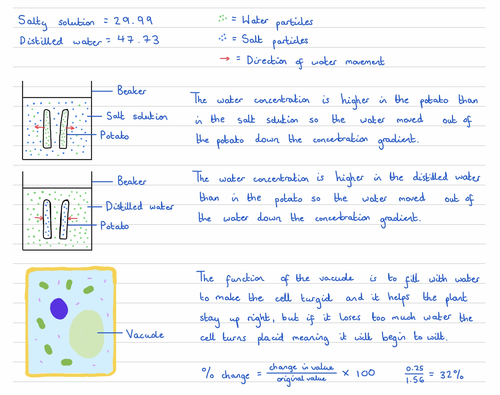 Salty solution = 29.99
Distilled water = 47.73
= Water particles
= Salt particles
→ = Direction of water movement
Beaker
Salt solution
Potato
The water concentration is higher in the potato than
in the salt solution so the water moved out of
the potato down the concentration gradient.
Beaker
Distilled water
Potato
The water concentration is higher in the distilled water
than in the potato so the water moved out of
the water down the concentration gradient.
Vacuole
The function of the vacuole is to fill with water
to make the cell turgid and it helps the plant
stay up right, but if it loses too much water the
cell turns placid meaning it will begin to wilt.
% change = change in value / original value × 100
0.25 / 1.56 = 32%